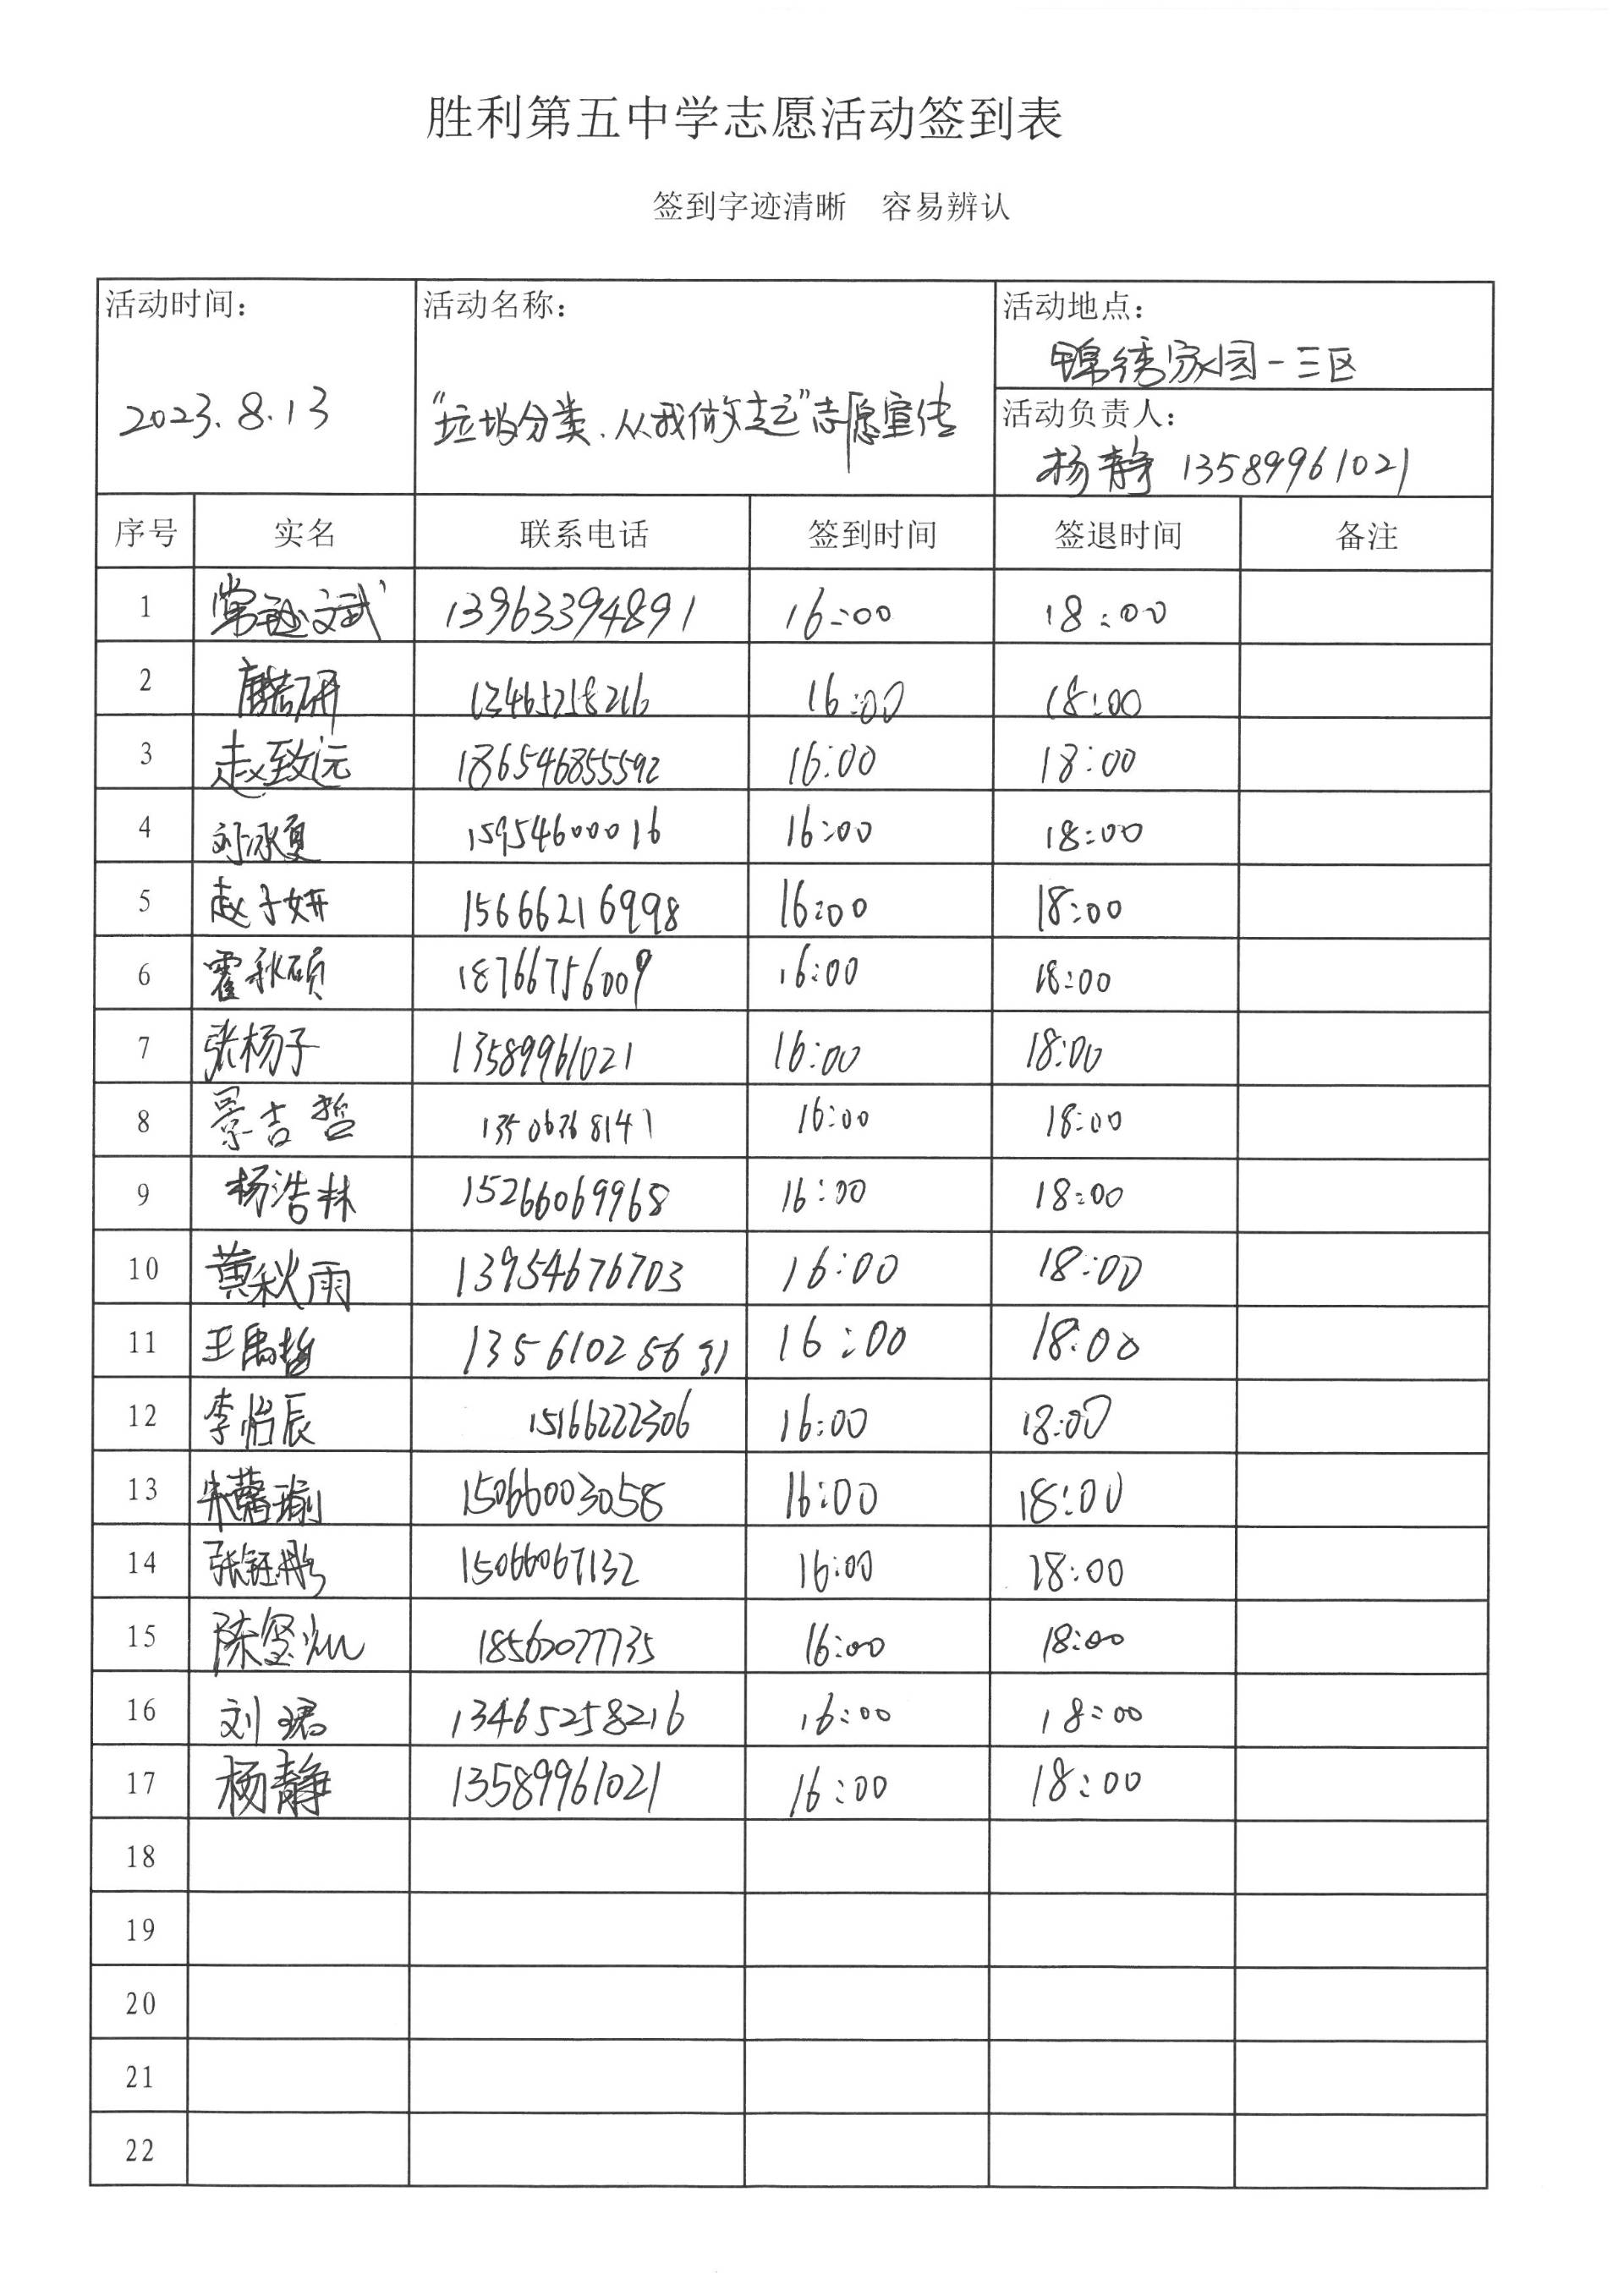 胜利第五中学志愿活动签到表
签到字迹清晰 容易辨认
活动时间： 活动名称： 活动地点：
锦绣家园一三区
2023.8.13 “垃圾分类、从我做起”志愿宣传
活动负责人：
杨静 13589961021
序号 实名 联系电话 签到时间 签退时间 备注
1 常 文武 13963394891 16:00 18:00
2 13465258216 16:00 18:00
3 赵致远 186546855592 16:00 18:00
4 刘泳夏 15954600016 16:00 18:00
5 赵子妍 15666216998 16:00 18:00
6 霍秋硕 18766756009 16:00 18:00
7 张杨子 13589961021 16:00 18:00
8 景吉哲 13506368141 16:00 18:00
9 杨浩林 15266069968 16:00 18:00
10 黄秋雨 13954676703 16:00 18:00
11 王禹哲 13561025631 16:00 18:00
12 李怡辰 15166222306 16:00 18:00
13 朱馨瑜 15066003058 16:00 18:00
14 张钰彤 15066067132 16:00 18:00
15 陈玺灿 18562077735 16:00 18:00
16 刘珺 13465258216 16:00 18:00
17 杨静 13589961021 16:00 18:00
18
19
20
21
22